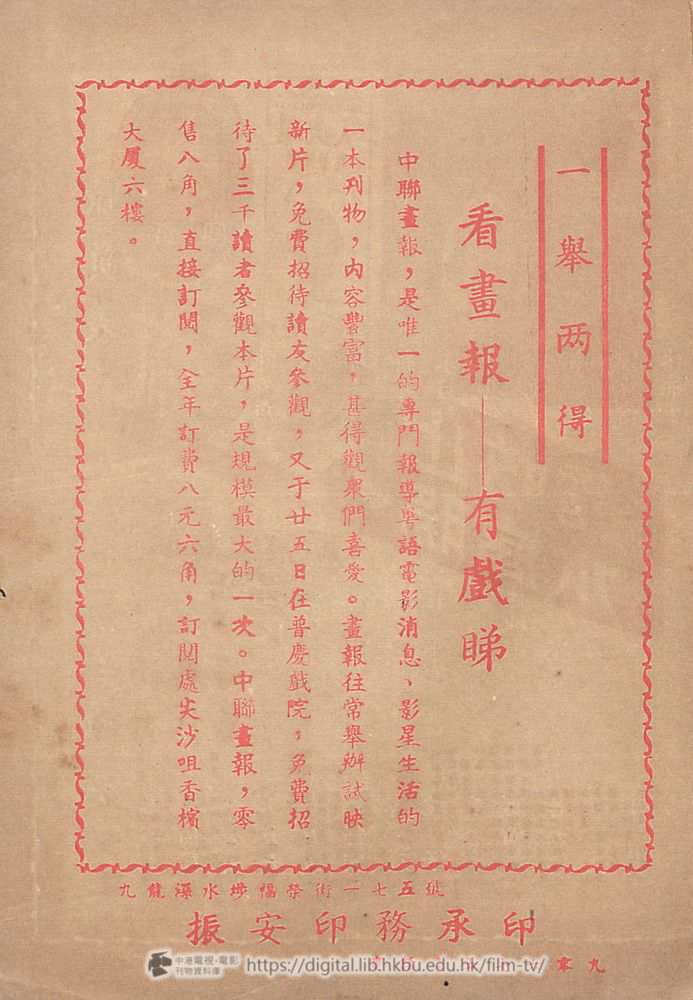 一舉两得
看畫報——有戲睇
中聯畫報，是唯一的專門報導粤語電影消息、影星生活的
一本刋物，内容豐富，甚得觀衆們喜愛。畫報往常舉辦試映
新片，免費招待讀友參觀，又于廿五日在普慶戲院，免費招
待了三千讀者參觀本片，是規模最大的一次。中聯畫報，零
售八角，直接訂閱，全年訂費八元六角，訂閱處尖沙咀香檳
大厦六樓。
九龍深水埗福榮街一七五號
振安印務承印
零九
中港電視·電影
刊物資料庫
https://digital.lib.hkbu.edu.hk/film-tv/